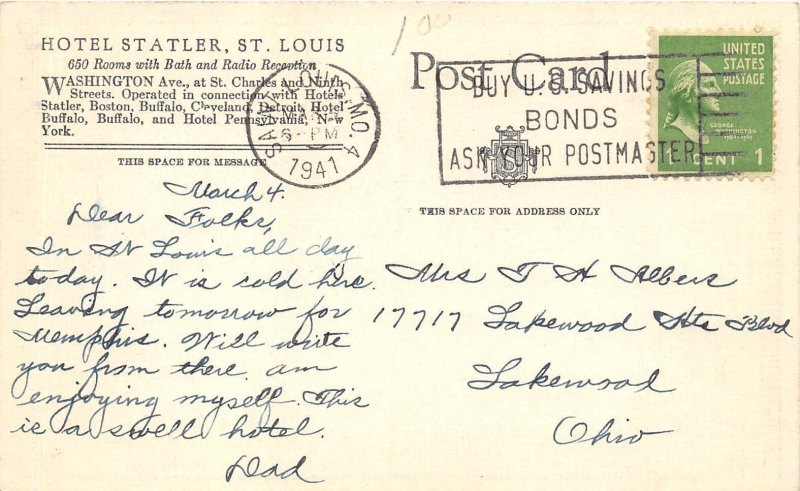 HOTEL STATLER, ST. LOUIS
650 Rooms with Bath and Radio Reception
WASHINGTON Ave., at St. Charles and Ninth
Streets. Operated in connection with Hotels
Statler, Boston, Buffalo, Cleveland, Detroit, Hotel
Buffalo, Buffalo, and Hotel Pennsylvania, New
York.
THIS SPACE FOR MESSAGE
March 4.
Dear Folks,
In St Louis all day
today. It is cold here.
Leaving tomorrow for
Memphis. Will write
you from there. am
enjoying myself. This
is a swell hotel.
Dad
100
Post Card
SAINT LOUIS, MO. 4
PM
1941
BUY U.S. SAVINGS
BONDS
ASK YOUR POSTMASTER
UNITED
STATES
POSTAGE
GEORGE
WASHINGTON
1789-1797
1 CENT 1
S
THIS SPACE FOR ADDRESS ONLY
Mrs T H Albers
17717 Lakewood Hts Blvd
Lakewood
Ohio